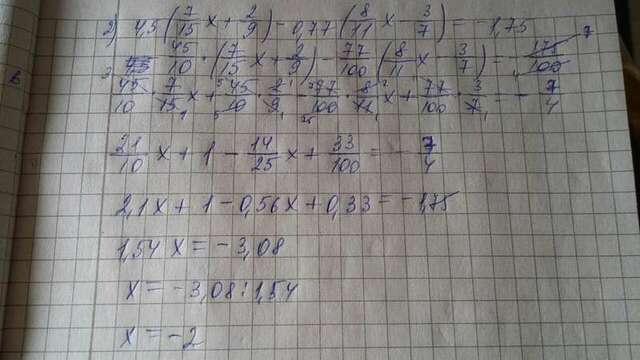 2) 4,5(7/15 x + 2/9) - 0,77(8/11 x - 3/7) = -1,75
45/10 · (7/15 x + 2/9) - 77/100 (8/11 x - 3/7) = - 175/100 7
45/10 · 7/15 x + 45/10 · 2/9 - 77/100 · 8/11 x + 77/100 · 3/7 = - 7/4
21/10 x + 1 - 14/25 x + 33/100 = - 7/4
2,1x + 1 - 0,56x + 0,33 = -1,75
1,54x = -3,08
x = -3,08 : 1,54
x = -2